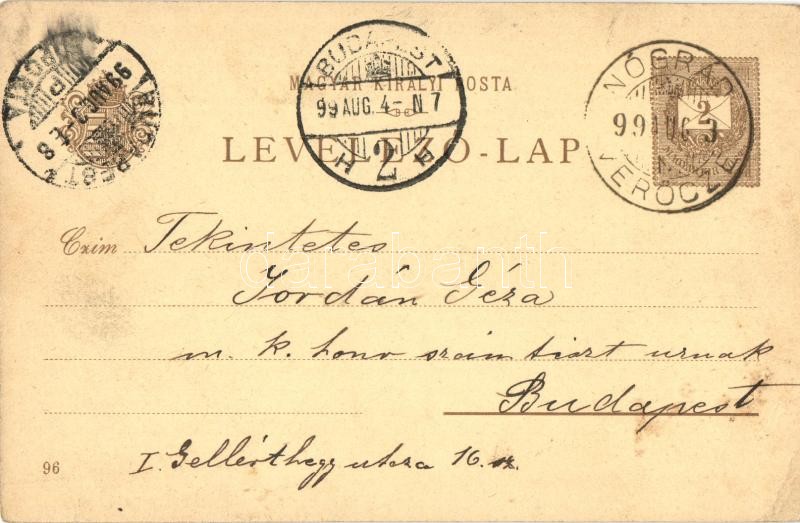 MAGYAR KIRÁLYI POSTA
LEVELEZŐ-LAP
BUDAPEST
99 AUG. 4 - N 7
2
NÓGRÁD
99 AUG 3
VERŐCZE
2
BUDAPEST
Czim Tekintetes
Jordán Géza
m. k. honv számtiszt urnak
Budapest
I. Gellérthegy utcza 16. sz.
96
darabanth